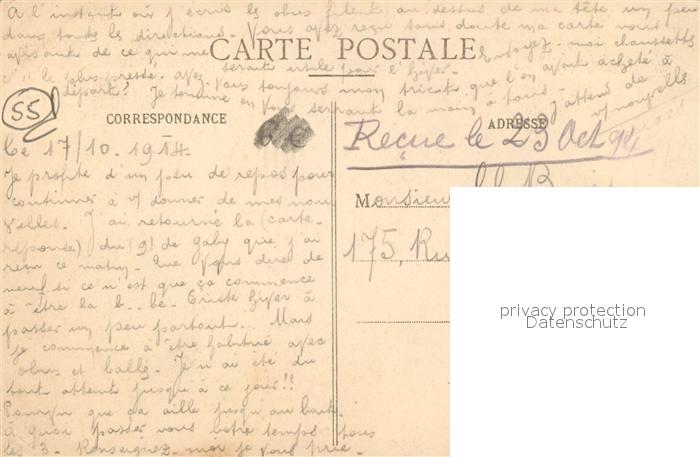 A l'instant où j'écris les obus filent au dessus de ma tête un peu
dans toutes les directions. Vous avez reçu sans doute ma carte vous
avisant de ce qui me serait utile pour l'hiver. Envoyez-moi chaussettes
c'est le plus pressé. avez-vous toujours mon tricot que l'on avait acheté à
départ? Je termine en vous serrant la main à tous. J'attend de
v/ nouvelles
CARTE POSTALE
55
CORRESPONDANCE
ADRESSE
6 €
Reçue le 23 Oct 14
Le 17/10.1914.
Je profite d'un peu de repos pour
continuer à v/ donner de mes nou-
velles. J'ai retourné la (carte-
réponse) du (9) de Gaby que j'ai
reçu ce matin. Que vous dire de
neuf si ce n'est que ça commence
à être la b..be. Triste hiver à
passer un peu partout... Mais
je commence à être habitué avec
obus et balles. Je n'ai été du
tout atteint jusqu'à ce jour!!
Pourvu que ça aille jusqu'au bout.
à quoi passer vous votre temps tous
les 3. Renseignez-moi je vous prie.
Monsieur
175, Rue
privacy protection
Datenschutz